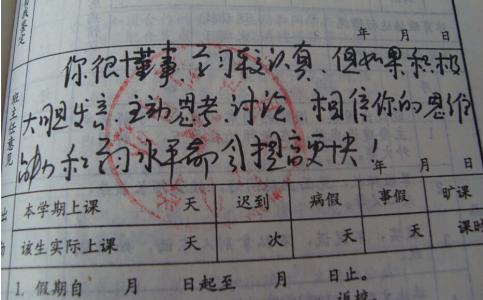 年 月 日
你很懂事，学习较认真，但如果积极
大胆发言，主动思考、讨论，相信你的思维
能力和学习水平都会提高更快！
年 月 日
班主任意见
本学期上课 天 迟到 病假 事假 旷课
该生实际上课 天 次 天 天 课时
1. 假期自 月 日起至 月 日止。